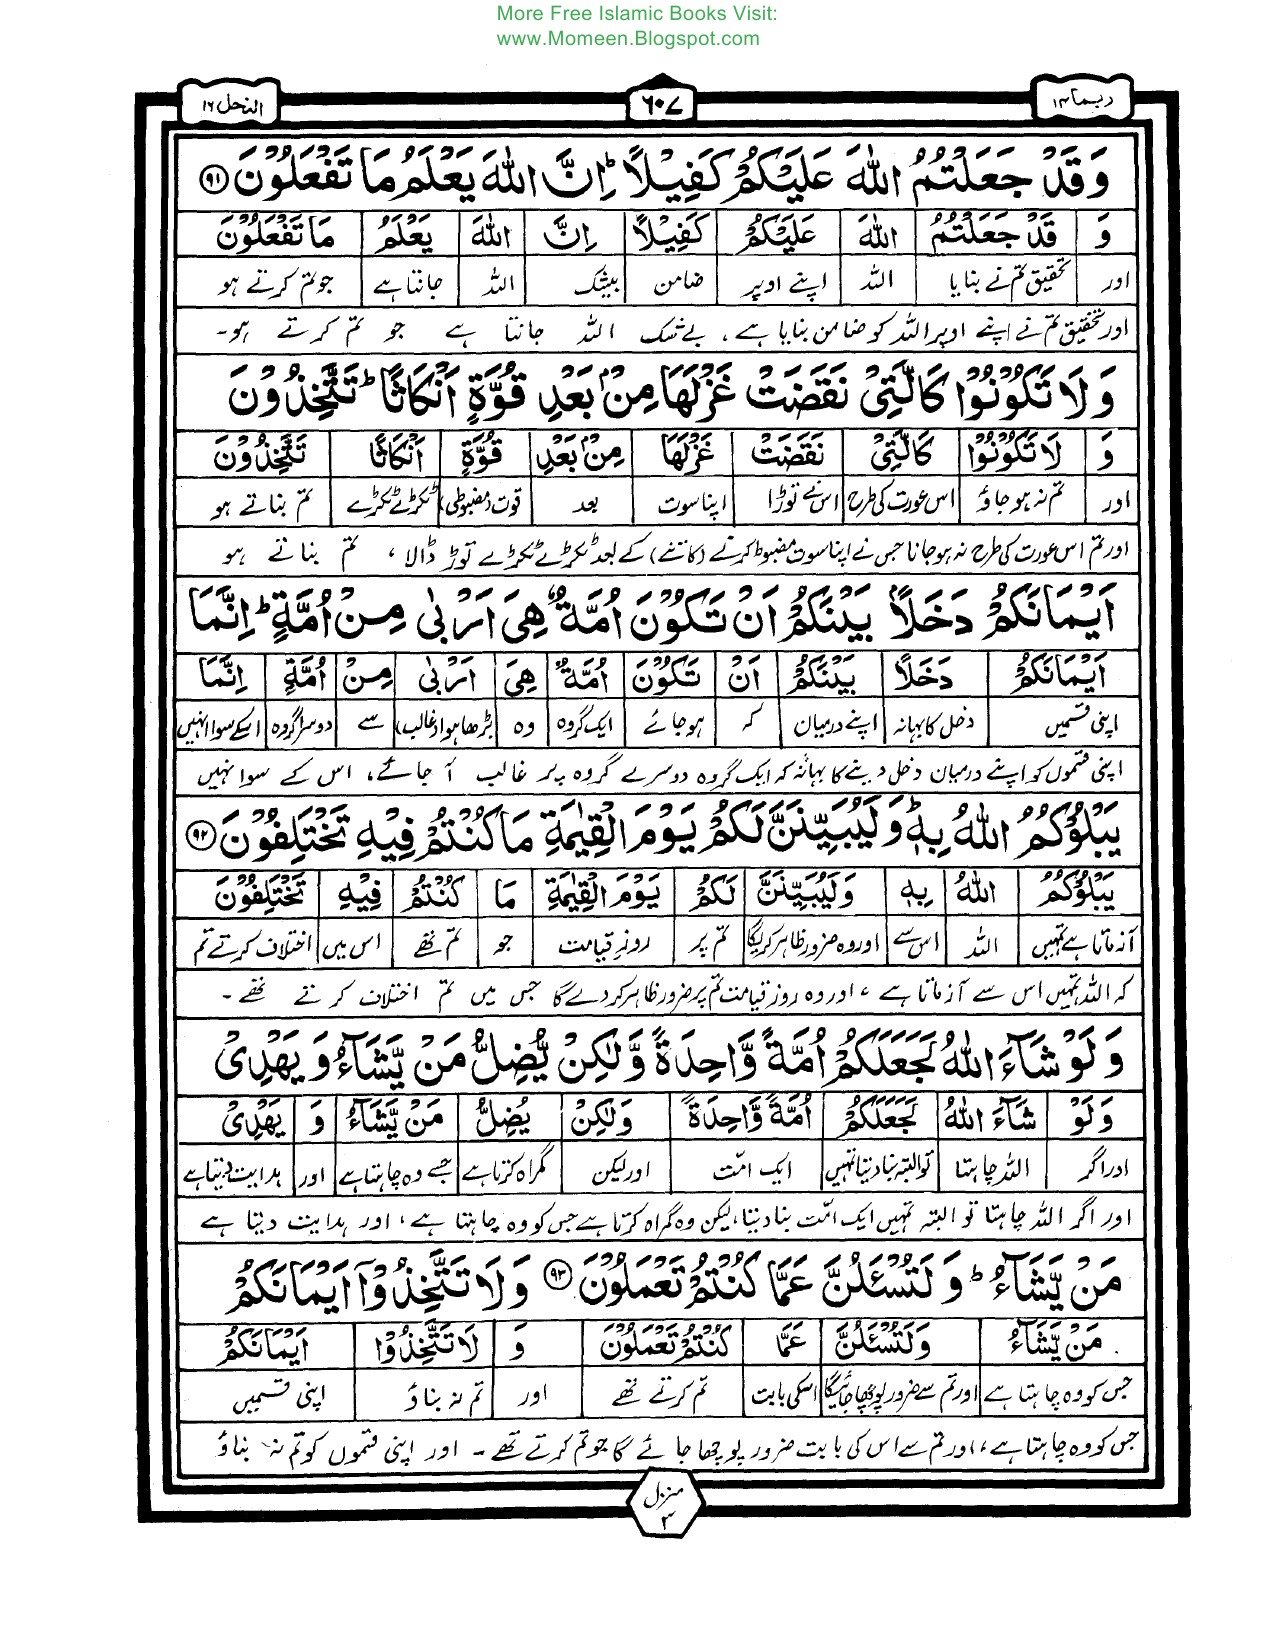 More Free Islamic Books Visit:
www.Momeen.Blogspot.com
ربما ۱۴ ۶۰۷ النحل ۱۶
وَقَدْ جَعَلْتُمُ اللّٰهَ عَلَيْكُمْ كَفِيْلًا ؕ اِنَّ اللّٰهَ يَعْلَمُ مَا تَفْعَلُوْنَ ﴿۹۱﴾
وَ قَدْ جَعَلْتُمُ اللّٰهَ عَلَيْكُمْ كَفِيْلًا اِنَّ اللّٰهَ يَعْلَمُ مَا تَفْعَلُوْنَ
اور تحقیق تم نے بنایا اللہ اپنے اوپر ضامن بیشک اللہ جانتا ہے جو تم کرتے ہو
اور تحقیق تم نے اپنے اوپر اللہ کو ضامن بنایا ہے، بے شک اللہ جانتا ہے جو تم کرتے ہو۔
وَلَا تَكُوْنُوْا كَالَّتِیْ نَقَضَتْ غَزْلَهَا مِنْۢ بَعْدِ قُوَّةٍ اَنْكَاثًا ؕ تَتَّخِذُوْنَ
وَ لَا تَكُوْنُوْا كَالَّتِیْ نَقَضَتْ غَزْلَهَا مِنْۢ بَعْدِ قُوَّةٍ اَنْكَاثًا تَتَّخِذُوْنَ
اور تم نہ ہو جاؤ اس عورت کی طرح اس نے توڑا اپنا سوت بعد قوت (مضبوطی) ٹکڑے ٹکڑے تم بناتے ہو
اور تم اس عورت کی طرح نہ ہو جانا جس نے اپنا سوت مضبوط کرنے (کاتنے) کے بعد ٹکڑے ٹکڑے توڑ ڈالا، تم بناتے ہو
اَيْمَانَكُمْ دَخَلًاۢ بَيْنَكُمْ اَنْ تَكُوْنَ اُمَّةٌ هِیَ اَرْبٰی مِنْ اُمَّةٍ ؕ اِنَّمَا
اَيْمَانَكُمْ دَخَلًاۢ بَيْنَكُمْ اَنْ تَكُوْنَ اُمَّةٌ هِیَ اَرْبٰی مِنْ اُمَّةٍ اِنَّمَا
اپنی قسمیں دخل کا بہانہ اپنے درمیان کہ ہو جائے ایک گروہ وہ بڑھا ہوا (غالب) سے دوسرا گروہ اسکے سوا نہیں
اپنی قسموں کو اپنے درمیان دخل دینے کا بہانہ کہ ایک گروہ دوسرے گروہ پر غالب آ جائے، اس کے سوا نہیں
يَبْلُوْكُمُ اللّٰهُ بِهٖ ؕ وَلَيُبَيِّنَنَّ لَكُمْ يَوْمَ الْقِيٰمَةِ مَا كُنْتُمْ فِيْهِ تَخْتَلِفُوْنَ ﴿۹۲﴾
يَبْلُوْكُمُ اللّٰهُ بِهٖ وَلَيُبَيِّنَنَّ لَكُمْ يَوْمَ الْقِيٰمَةِ مَا كُنْتُمْ فِيْهِ تَخْتَلِفُوْنَ
آزماتا ہے تمہیں اللہ اس سے اور وہ ضرور ظاہر کریگا تم پر روزِ قیامت جو تم تھے اس میں اختلاف کرتے تم
کہ اللہ تمہیں اس سے آزماتا ہے، اور وہ روز قیامت تم پر ضرور ظاہر کردے گا جس میں تم اختلاف کرتے تھے۔
وَلَوْ شَآءَ اللّٰهُ لَجَعَلَكُمْ اُمَّةً وَّاحِدَةً وَّلٰكِنْ يُّضِلُّ مَنْ يَّشَآءُ وَيَهْدِیْ
وَلَوْ شَآءَ اللّٰهُ لَجَعَلَكُمْ اُمَّةً وَّاحِدَةً وَلٰكِنْ يُضِلُّ مَنْ يَّشَآءُ وَ يَهْدِیْ
اور اگر اللہ چاہتا تو البتہ بنا دیتا تمہیں ایک امّت اور لیکن گمراہ کرتا ہے جسے وہ چاہتا ہے اور ہدایت دیتا ہے
اور اگر اللہ چاہتا تو البتہ تمہیں ایک امّت بنا دیتا، لیکن وہ گمراہ کرتا ہے جس کو وہ چاہتا ہے، اور ہدایت دیتا ہے
مَنْ يَّشَآءُ ؕ وَلَتُسْئَلُنَّ عَمَّا كُنْتُمْ تَعْمَلُوْنَ ﴿۹۳﴾ وَلَا تَتَّخِذُوْۤا اَيْمَانَكُمْ
مَنْ يَّشَآءُ وَلَتُسْئَلُنَّ عَمَّا كُنْتُمْ تَعْمَلُوْنَ وَ لَا تَتَّخِذُوْا اَيْمَانَكُمْ
جس کو وہ چاہتا ہے اور تم سے ضرور پوچھا جائیگا اسکی بابت تم کرتے تھے اور تم نہ بناؤ اپنی قسمیں
جس کو وہ چاہتا ہے، اور تم سے اس کی بابت ضرور پوچھا جائے گا جو تم کرتے تھے۔ اور اپنی قسموں کو تم نہ بناؤ
منزل
۳